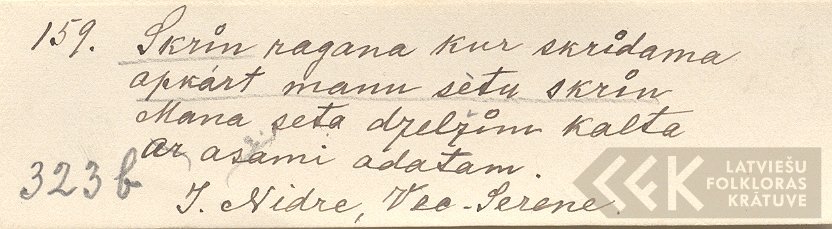 159. Skrin ragana kur skridama
apkárt manu sètu skrin
Mana seta dzelzim kalta
ar asami adatam.
323b
J. Nidre, Vec-Serene.
LATVIEŠU
FOLKLORAS
KRĀTUVE